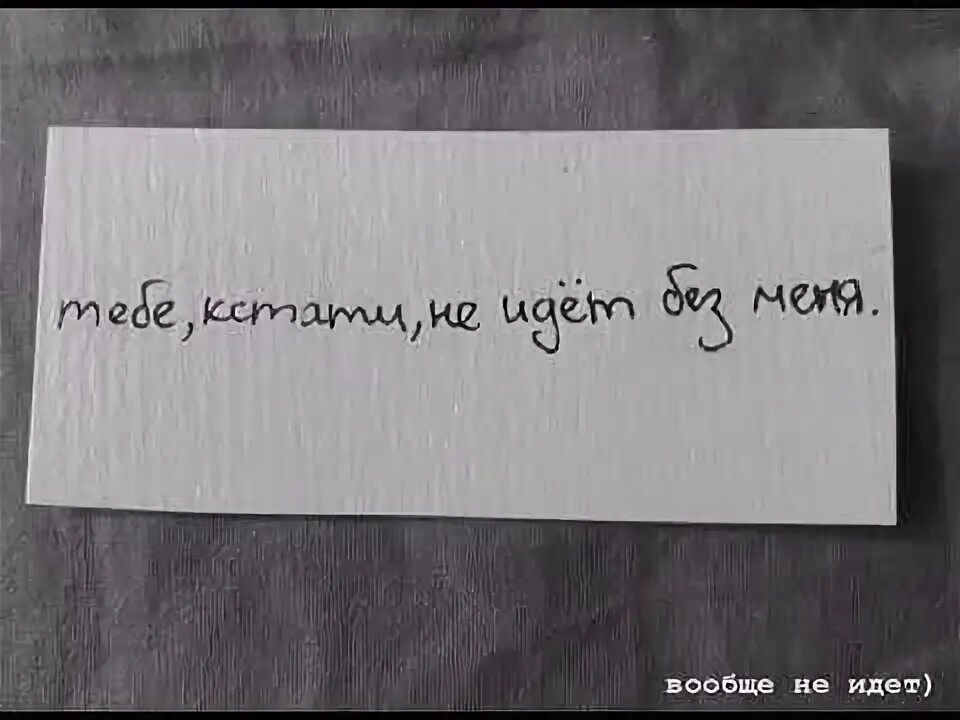 тебе, кстати, не идёт без меня.
вообще не идет)